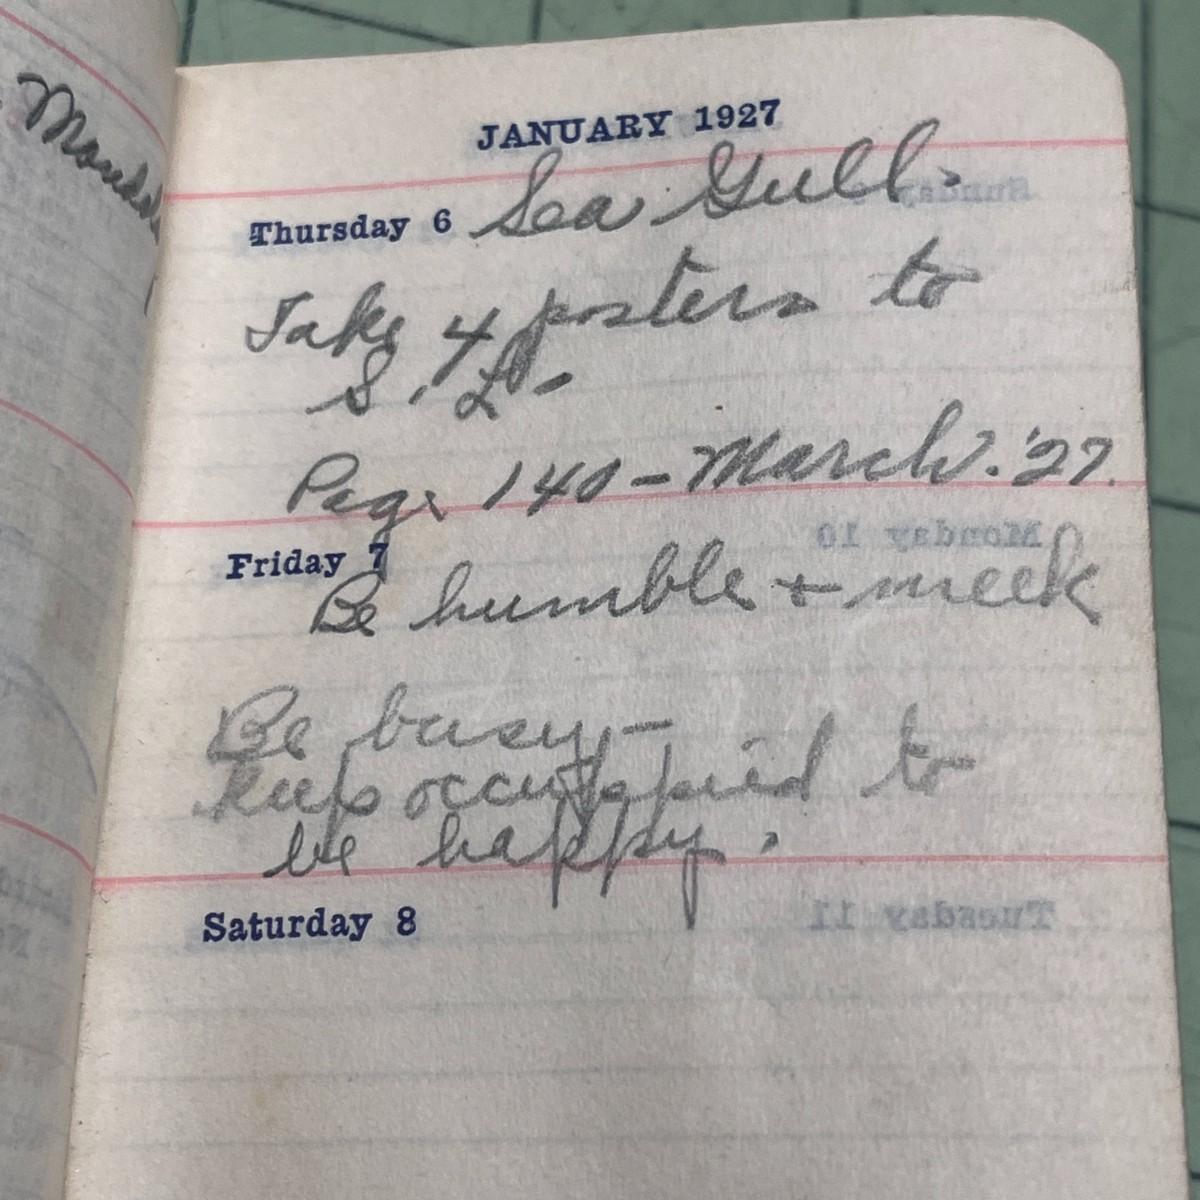 Monda
JANUARY 1927
Thursday 6 Sea Gull.
Take 4 posters to
S. L. -
Page 140 - March. '27.
Friday 7
Be humble + meek
Be busy -
keep occuppied to
be happy.
Saturday 8